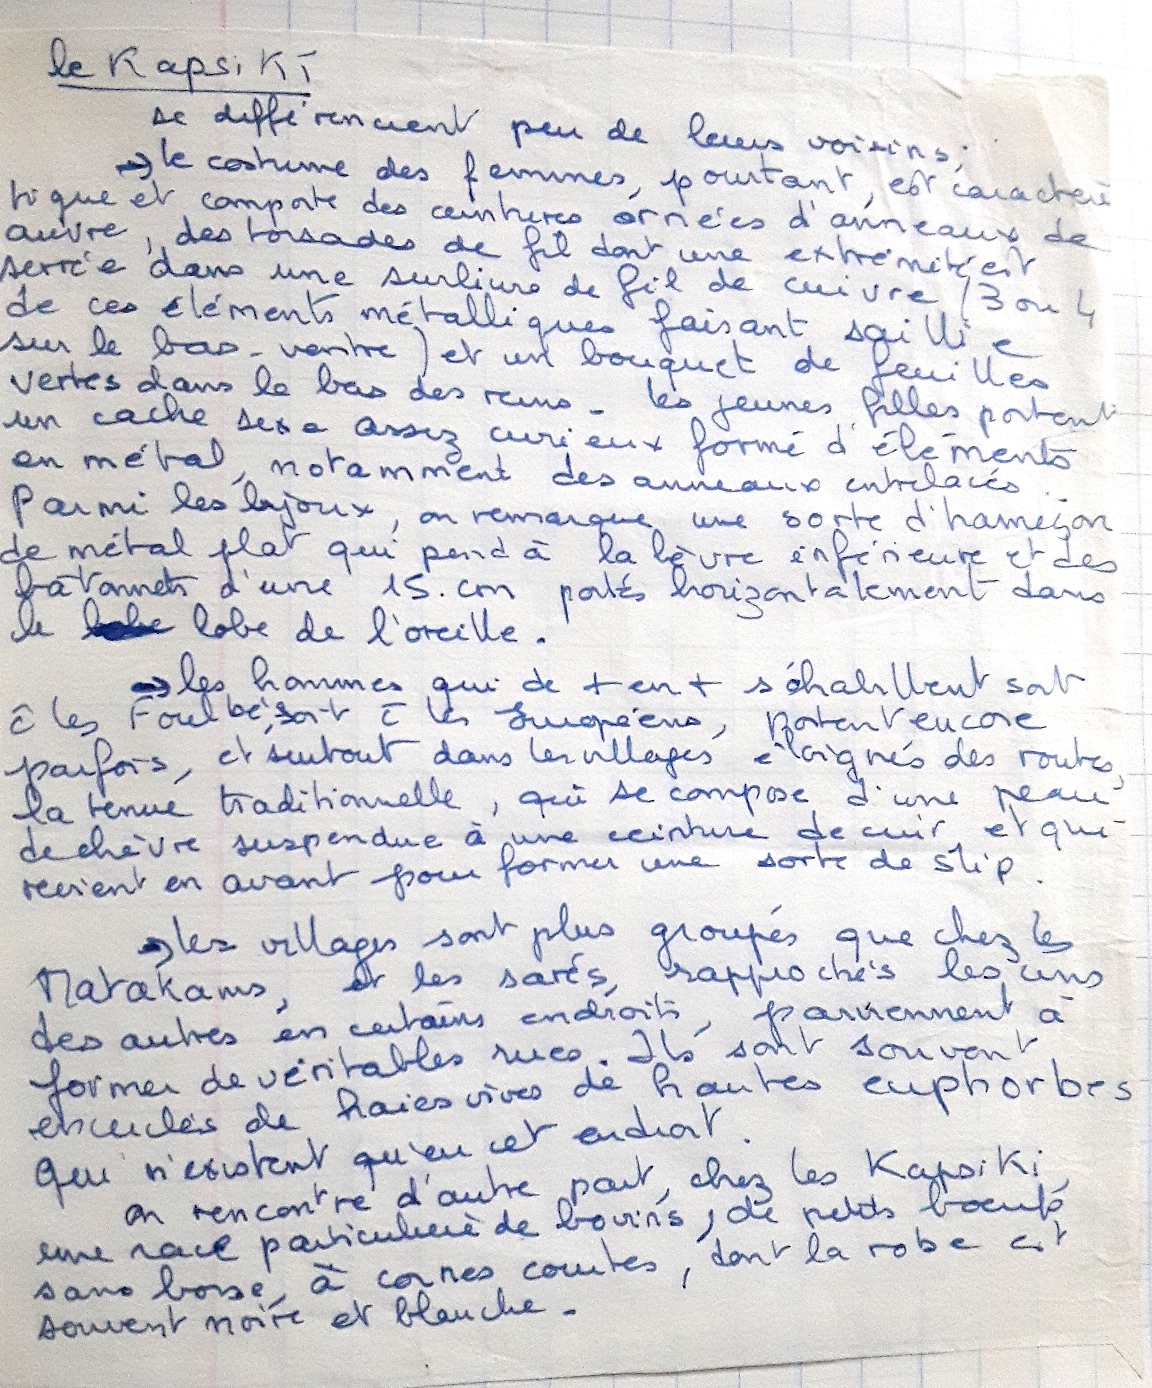 le Kapsiki
se différencient peu de leurs voisins;
→ le costume des femmes, pourtant, est caracthéris
tique et comporte des ceintures ornées d'anneaux de
cuivre, des torsades de fil dont une extrémité est
serrée dans une surliure de fil de cuivre (3 ou 4
de ces éléments métalliques faisant saillie
sur le bas-ventre) et un bouquet de feuilles
vertes dans le bas des reins - les jeunes filles portent
un cache sexe assez curieux formé d'éléments
en métal, notamment des anneaux entrelacés.
Parmi les bijoux, on remarque une sorte d'hameçon
de métal plat qui pend à la lèvre inférieure et des
bâtonnets d'une 15.cm portés horizontalement dans
le lobe de l'oreille.
→ les hommes qui de + en + s'habillent soit
c̄ les Foulbé, soit c̄ les Européens, portent encore
parfois, et surtout dans les villages éloignés des routes,
la tenue traditionnelle, qui se compose d'une peau
de chèvre suspendue à une ceinture de cuir et qui
revient en avant pour former une sorte de slip.
→ les villages sont plus groupés que chez les
Matakams, et les sarés, rapprochés les uns
des autres en certains endroits, parviennent à
former de véritables rues. Ils sont souvent
encerclés de haies vives de hautes euphorbes
qui n'existent qu'en cet endroit.
on rencontre d'autre part, chez les Kapsiki,
une race particulière de bovins, de petits boeufs
sans bosse, à cornes courtes, dont la robe est
souvent noire et blanche -